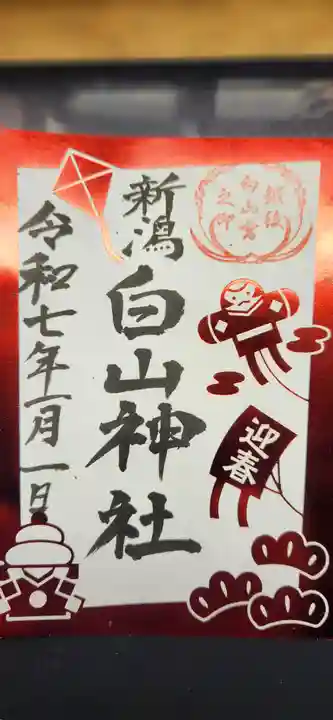 越後
白山宮
之印
迎春
新潟
白山神社
令和七年一月一日